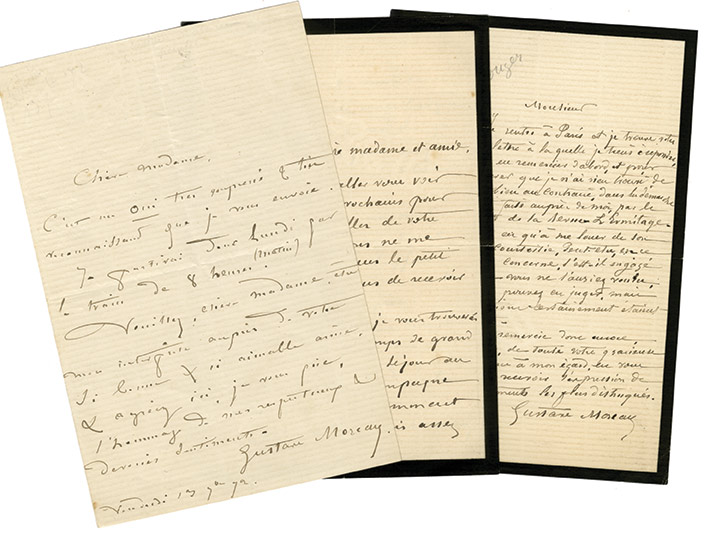 Chère madame,
C'est un oui très empressé & très
reconnaissant que je vous envoie
Je partirai donc Lundi par
le train de 8 heures (matin)
Veuillez, chère madame, être
mon interprète auprès de votre
si bonne & si aimable amie,
& agréez ici, je vous prie,
l'hommage de mes respectueux &
dévoués sentiments.
Gustave Moreau
Vendredi 13
madame et amie,
vous voir
prochains pour
de votre
ne me
le petit
de recevoir
je vous trouverai
de grand
séjour au
assez
Monsieur
rentre à Paris et je trouve votre
lettre à la quelle je tiens à répondre
en remercier d'abord, et pour
que je n'ai rien trouvé de
au contraire, dans la démarche
faite auprès de moi, par le
de la Revue L'Ermitage
qu'à me louer de son
courtoisie, Peut-être, en ce
concerne, s'est-il engagé
vous ne l'auriez voulu,
pouvez en juger, mais
certainement étaient
remercie donc encore
de toute votre gracieuse
à mon égard, en vous
recevoir l'expression de
les plus distingués.
Gustave Moreau